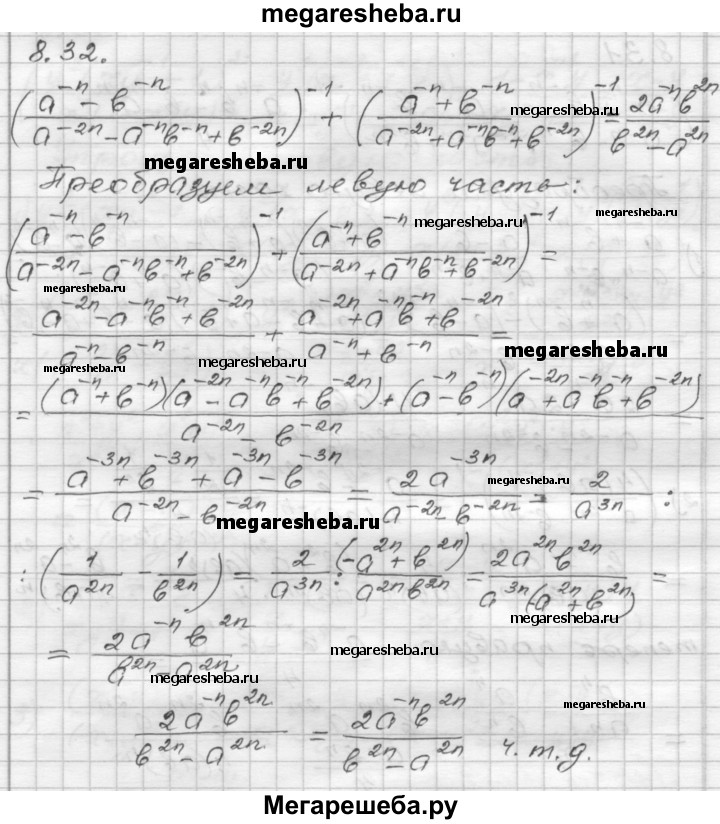 megaresheba.ru
8.32.
((a^{-n} - b^{-n})/(a^{-2n} - a^{-n}b^{-n} + b^{-2n}))^{-1} + ((a^{-n} + b^{-n})/(a^{-2n} + a^{-n}b^{-n} + b^{-2n}))^{-1} = 2a^{-n}b^{2n}/(b^{2n} - a^{2n})
megaresheba.ru
megaresheba.ru
megaresheba.ru
Преобразуем левую часть:
megaresheba.ru
((a^{-n} - b^{-n})/(a^{-2n} - a^{-n}b^{-n} + b^{-2n}))^{-1} + ((a^{-n} + b^{-n})/(a^{-2n} + a^{-n}b^{-n} + b^{-2n}))^{-1} =
megaresheba.ru
megaresheba.ru
(a^{-2n} - a^{-n}b^{-n} + b^{-2n})/(a^{-n} - b^{-n}) + (a^{-2n} + a^{-n}b^{-n} + b^{-2n})/(a^{-n} + b^{-n}) =
megaresheba.ru
megaresheba.ru
megaresheba.ru
= ((a^{-n} + b^{-n})(a^{-2n} - a^{-n}b^{-n} + b^{-2n}) + (a^{-n} - b^{-n})(a^{-2n} + a^{-n}b^{-n} + b^{-2n}))/(a^{-2n} - b^{-2n})
= (a^{-3n} + b^{-3n} + a^{-3n} - b^{-3n})/(a^{-2n} - b^{-2n}) = 2a^{-3n}/(a^{-2n} - b^{-2n}) = 2/a^{3n} :
megaresheba.ru
megaresheba.ru
: (1/a^{2n} - 1/b^{2n}) = 2/a^{3n} : (-a^{2n} + b^{2n})/(a^{2n}b^{2n}) = 2a^{2n}b^{2n}/(a^{3n}(-a^{2n} + b^{2n})) =
megaresheba.ru
= 2a^{-n}b^{2n}/(b^{2n} - a^{2n})
megaresheba.ru
megaresheba.ru
2a^{-n}b^{2n}/(b^{2n} - a^{2n}) = 2a^{-n}b^{2n}/(b^{2n} - a^{2n}) ч.т.д.
megaresheba.ru
Мегарешеба.ру